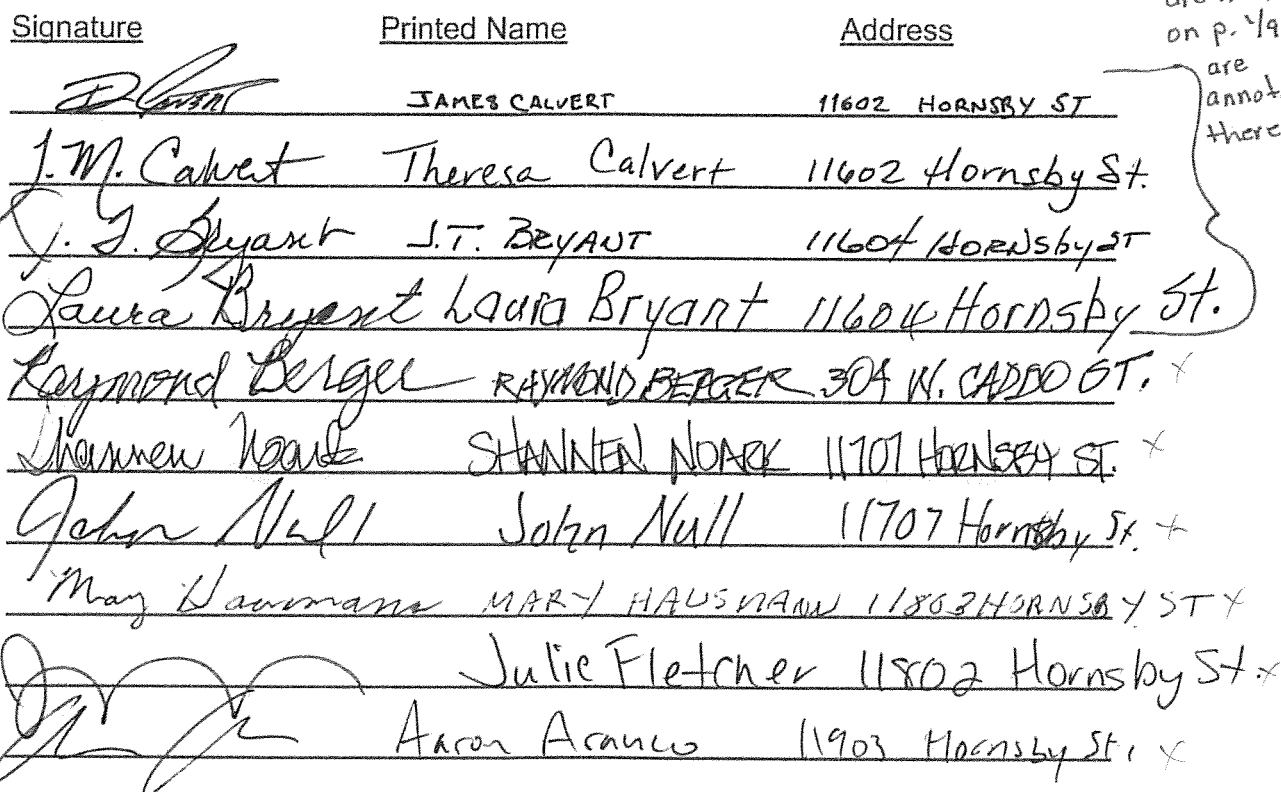 Signature Printed Name Address
on p. 1/9
are
annot
there
JAMES CALVERT 11602 HORNSBY ST
T.M. Calvert Theresa Calvert 11602 Hornsby St.
J. T. Bryant J.T. BRYANT 11604 HORNSBY ST
Laura Bryant Laura Bryant 11604 Hornsby St.
Raymond Berger RAYMOND BERGER 304 W. CADDO ST. x
Shannen Noark SHANNEN NOARK 11707 HORNSBY ST. x
John Null John Null 11707 Hornsby St. x
Mary Hausmann MARY HAUSMANN 11803 HORNSBY ST x
Julie Fletcher 11802 Hornsby St. x
Aaron 11903 Hornsby St. x